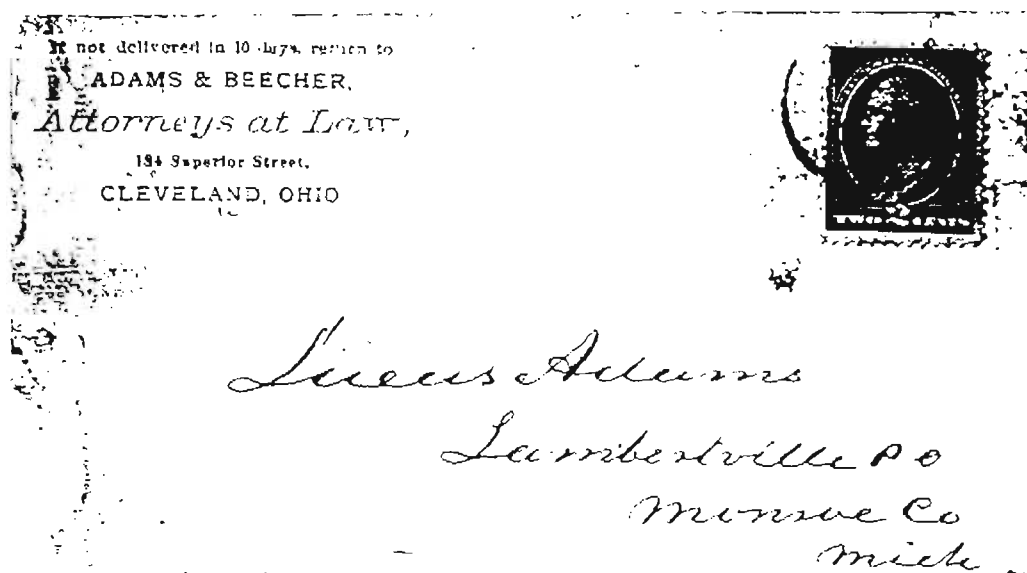 If not delivered in 10 days, return to
ADAMS & BEECHER,
Attorneys at Law,
184 Superior Street,
CLEVELAND, OHIO
TWO 2 CENTS
Lucus Adams
Lambertville P O
Monroe Co
Mich